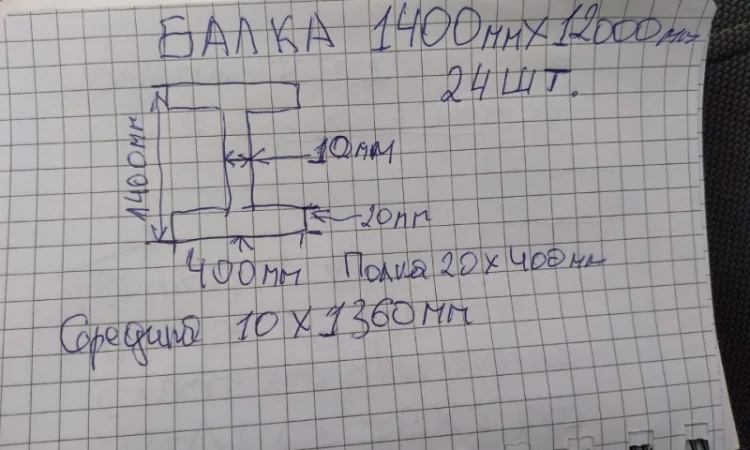 БАЛКА 1400мм х 12000мм
24 шт.
1400мм
10мм
20мм
400мм
Полка 20 х 400мм
Середина 10 х 1360мм